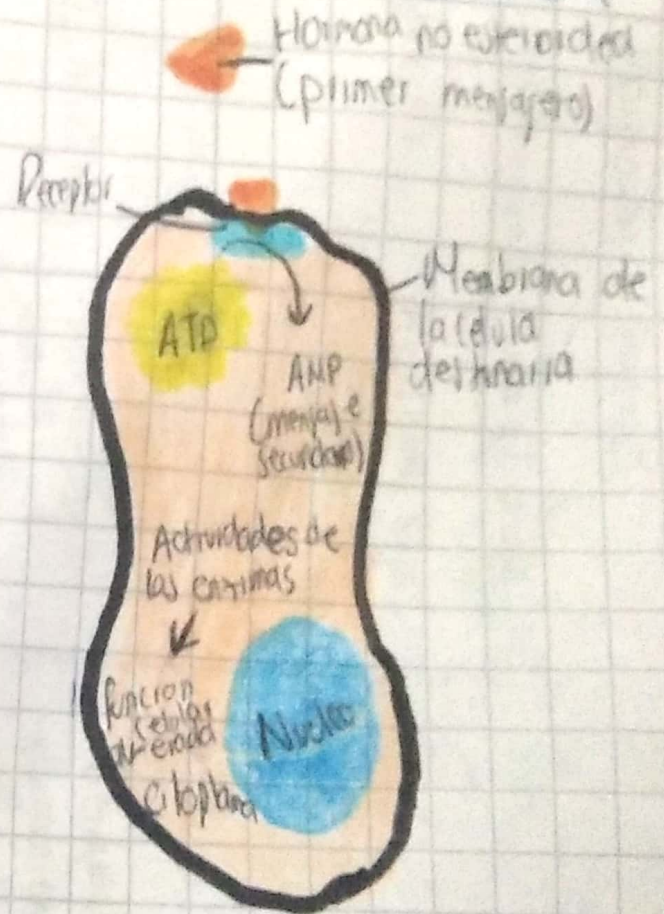 Hormona no esteroidea
(primer mensajero)
Receptor
Membrana de
la célula
destinaria
ATP
AMP
(mensaje
secundario)
Actividades de
las enzimas
Función
celular
alterada
Núcleo
Citoplasma